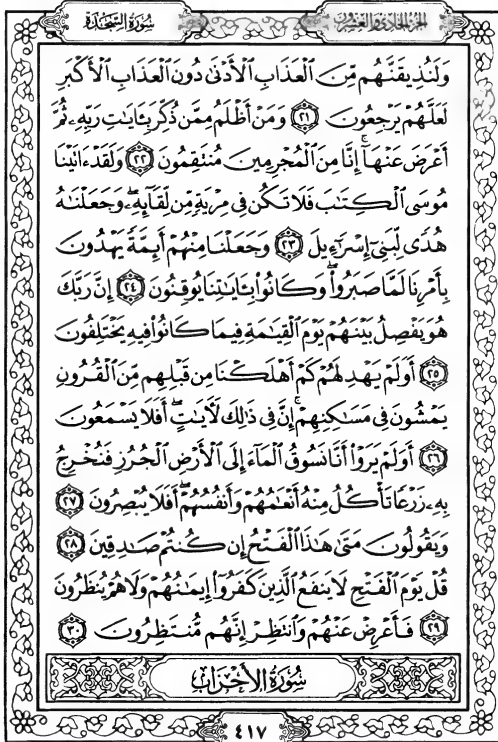 سُورَةُ السَّجْدَةِ
الجُزْءُ الحَادِي وَالعِشْرُونَ
وَلَنُذِيقَنَّهُم مِّنَ ٱلْعَذَابِ ٱلْأَدْنَىٰ دُونَ ٱلْعَذَابِ ٱلْأَكْبَرِ
لَعَلَّهُمْ يَرْجِعُونَ ٢١ وَمَنْ أَظْلَمُ مِمَّن ذُكِّرَ بِـَٔايَٰتِ رَبِّهِۦ ثُمَّ
أَعْرَضَ عَنْهَآ ۚ إِنَّا مِنَ ٱلْمُجْرِمِينَ مُنتَقِمُونَ ٢٢ وَلَقَدْ ءَاتَيْنَا
مُوسَى ٱلْكِتَٰبَ فَلَا تَكُن فِى مِرْيَةٍ مِّن لِّقَآئِهِۦ ۖ وَجَعَلْنَٰهُ
هُدًى لِّبَنِىٓ إِسْرَٰٓءِيلَ ٢٣ وَجَعَلْنَا مِنْهُمْ أَئِمَّةً يَهْدُونَ
بِأَمْرِنَا لَمَّا صَبَرُوا۟ ۖ وَكَانُوا۟ بِـَٔايَٰتِنَا يُوقِنُونَ ٢٤ إِنَّ رَبَّكَ
هُوَ يَفْصِلُ بَيْنَهُمْ يَوْمَ ٱلْقِيَٰمَةِ فِيمَا كَانُوا۟ فِيهِ يَخْتَلِفُونَ
٢٥ أَوَلَمْ يَهْدِ لَهُمْ كَمْ أَهْلَكْنَا مِن قَبْلِهِم مِّنَ ٱلْقُرُونِ
يَمْشُونَ فِى مَسَٰكِنِهِمْ ۚ إِنَّ فِى ذَٰلِكَ لَـَٔايَٰتٍ ۖ أَفَلَا يَسْمَعُونَ
٢٦ أَوَلَمْ يَرَوْا۟ أَنَّا نَسُوقُ ٱلْمَآءَ إِلَى ٱلْأَرْضِ ٱلْجُرُزِ فَنُخْرِجُ
بِهِۦ زَرْعًا تَأْكُلُ مِنْهُ أَنْعَٰمُهُمْ وَأَنفُسُهُمْ ۖ أَفَلَا يُبْصِرُونَ ٢٧
وَيَقُولُونَ مَتَىٰ هَٰذَا ٱلْفَتْحُ إِن كُنتُمْ صَٰدِقِينَ ٢٨
قُلْ يَوْمَ ٱلْفَتْحِ لَا يَنفَعُ ٱلَّذِينَ كَفَرُوٓا۟ إِيمَٰنُهُمْ وَلَا هُمْ يُنظَرُونَ
٢٩ فَأَعْرِضْ عَنْهُمْ وَٱنتَظِرْ إِنَّهُم مُّنتَظِرُونَ ٣٠
سُورَةُ الأَحْزَابِ
٤١٧